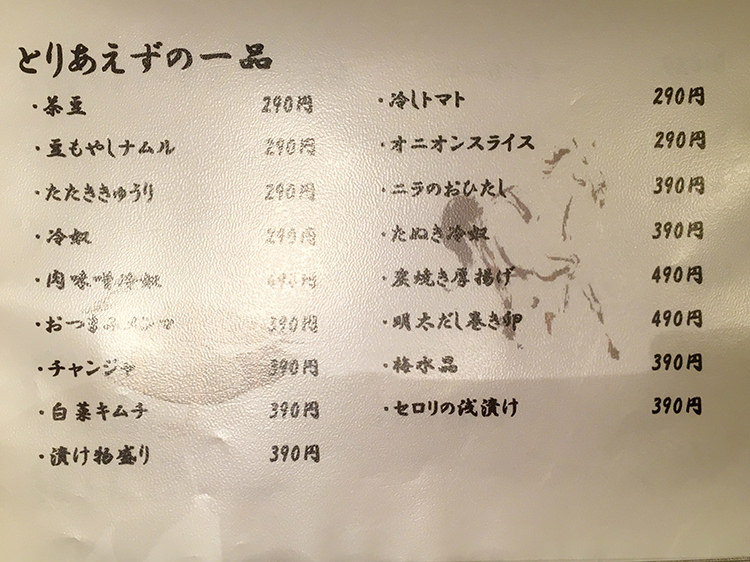 とりあえずの一品
・茶豆 290円
・豆もやしナムル 290円
・たたききゅうり 290円
・冷奴 290円
・肉味噌冷奴 490円
・おつまみメンマ 390円
・チャンジャ 390円
・白菜キムチ 390円
・漬け物盛り 390円
・冷しトマト 290円
・オニオンスライス 290円
・ニラのおひたし 390円
・たぬき冷奴 390円
・炭焼き厚揚げ 490円
・明太だし巻き卵 490円
・梅水晶 390円
・セロリの浅漬け 390円